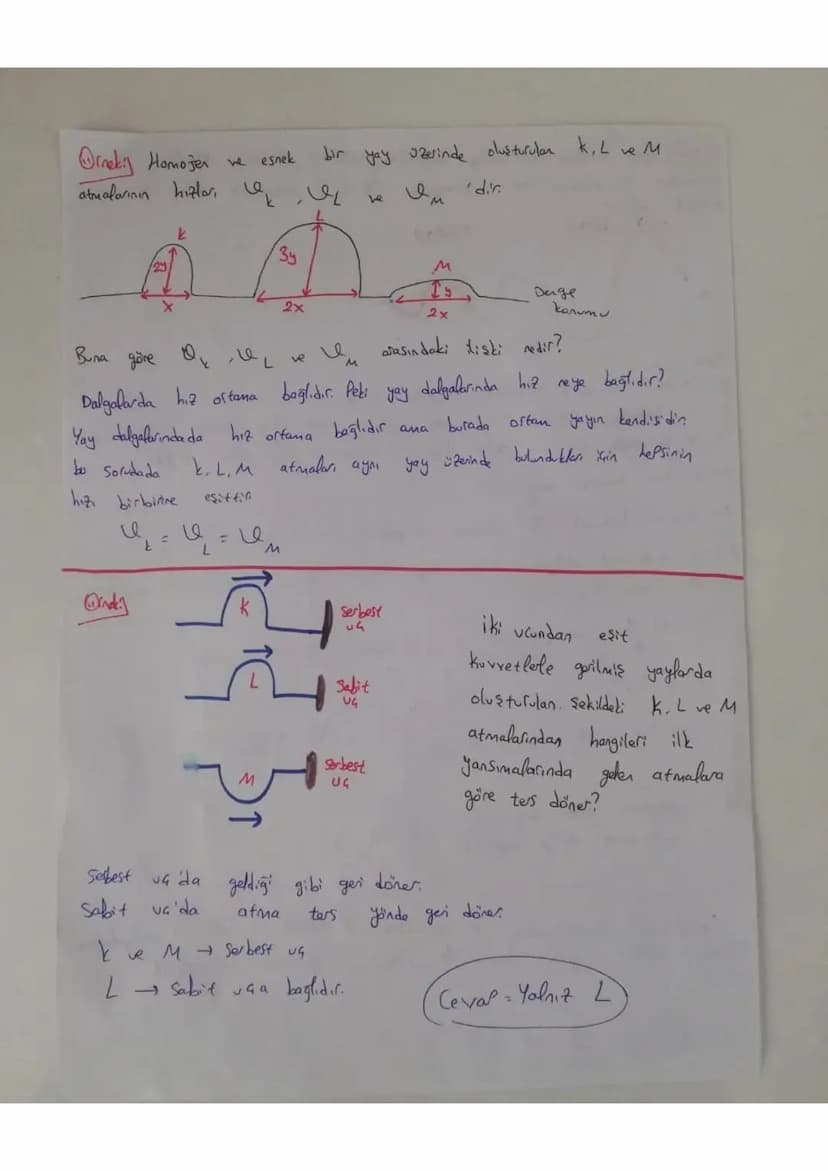 Örnek: Homojen ve esnek bir yay üzerinde oluşturulan K, L ve M
atmalarının hızları ϑK, ϑL ve ϑM 'dir.
K
L
2y
3y
M
y
x
2x
2x
Denge
konumu
Buna göre ϑK, ϑL ve ϑM arasındaki ilişki nedir?
Dalgalarda hız ortama bağlıdır. Peki yay dalgalarında hız neye bağlıdır?
Yay dalgalarında da hız ortama bağlıdır ama burada ortam yayın kendisidir.
bu soruda da K, L, M atmaları aynı yay üzerinde bulundukları için hepsinin
hızı birbirine eşittir.
ϑK = ϑL = ϑM
Örnek:
K
serbest
uç
L
Sabit
uç
M
serbest
uç
iki ucundan eşit
kuvvetlerle gerilmiş yaylarda
oluşturulan şekildeki K, L ve M
atmalarından hangileri ilk
yansımalarında gelen atmalara
göre ters döner?
Serbest uç'da geldiği gibi geri döner.
Sabit uç'da atma ters yönde geri döner.
K ve M → serbest uç
L → sabit uca bağlıdır.
Cevap = Yalnız L